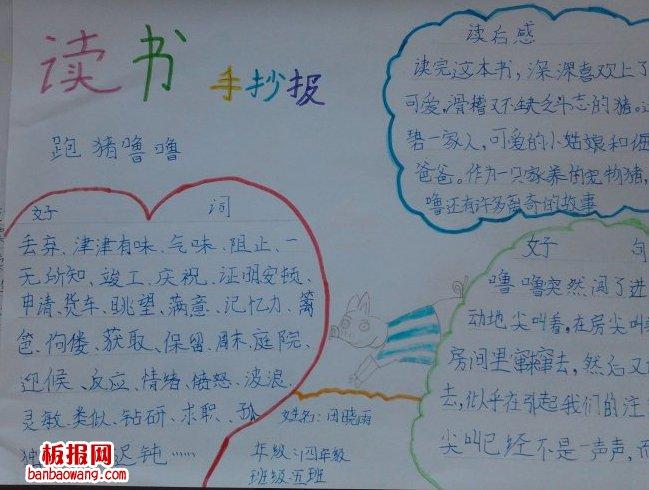 读书
手抄报
跑猪噜噜
好 词
丢弃、津津有味、气味、阻止、一
无所知、竣工、庆祝、证明安顿、
申请、货车、眺望、满意、记忆力、篱
笆、佝偻、获取、保留、周末、庭院、
迎候、反应、情绪、愤怒、波浪、
灵敏、类似、钻研、求职、孤
独 迟钝……
姓名:田晓雨
年级:四年级
班级五班
读后感
读完这本书,深深喜欢上了
可爱,滑稽又不缺乏斗志的猪。
碧一家人,可爱的小姑娘和倔
爸爸。作为一只家养的宠物猪,
噜还有许多离奇的故事
好 句
噜噜突然闯了进
动地尖叫着,在房尖叫
房间里窜来窜去,然后又
去,似乎在引起我们的注
尖叫已经不是一声声,而
板报网
banbaowang.com